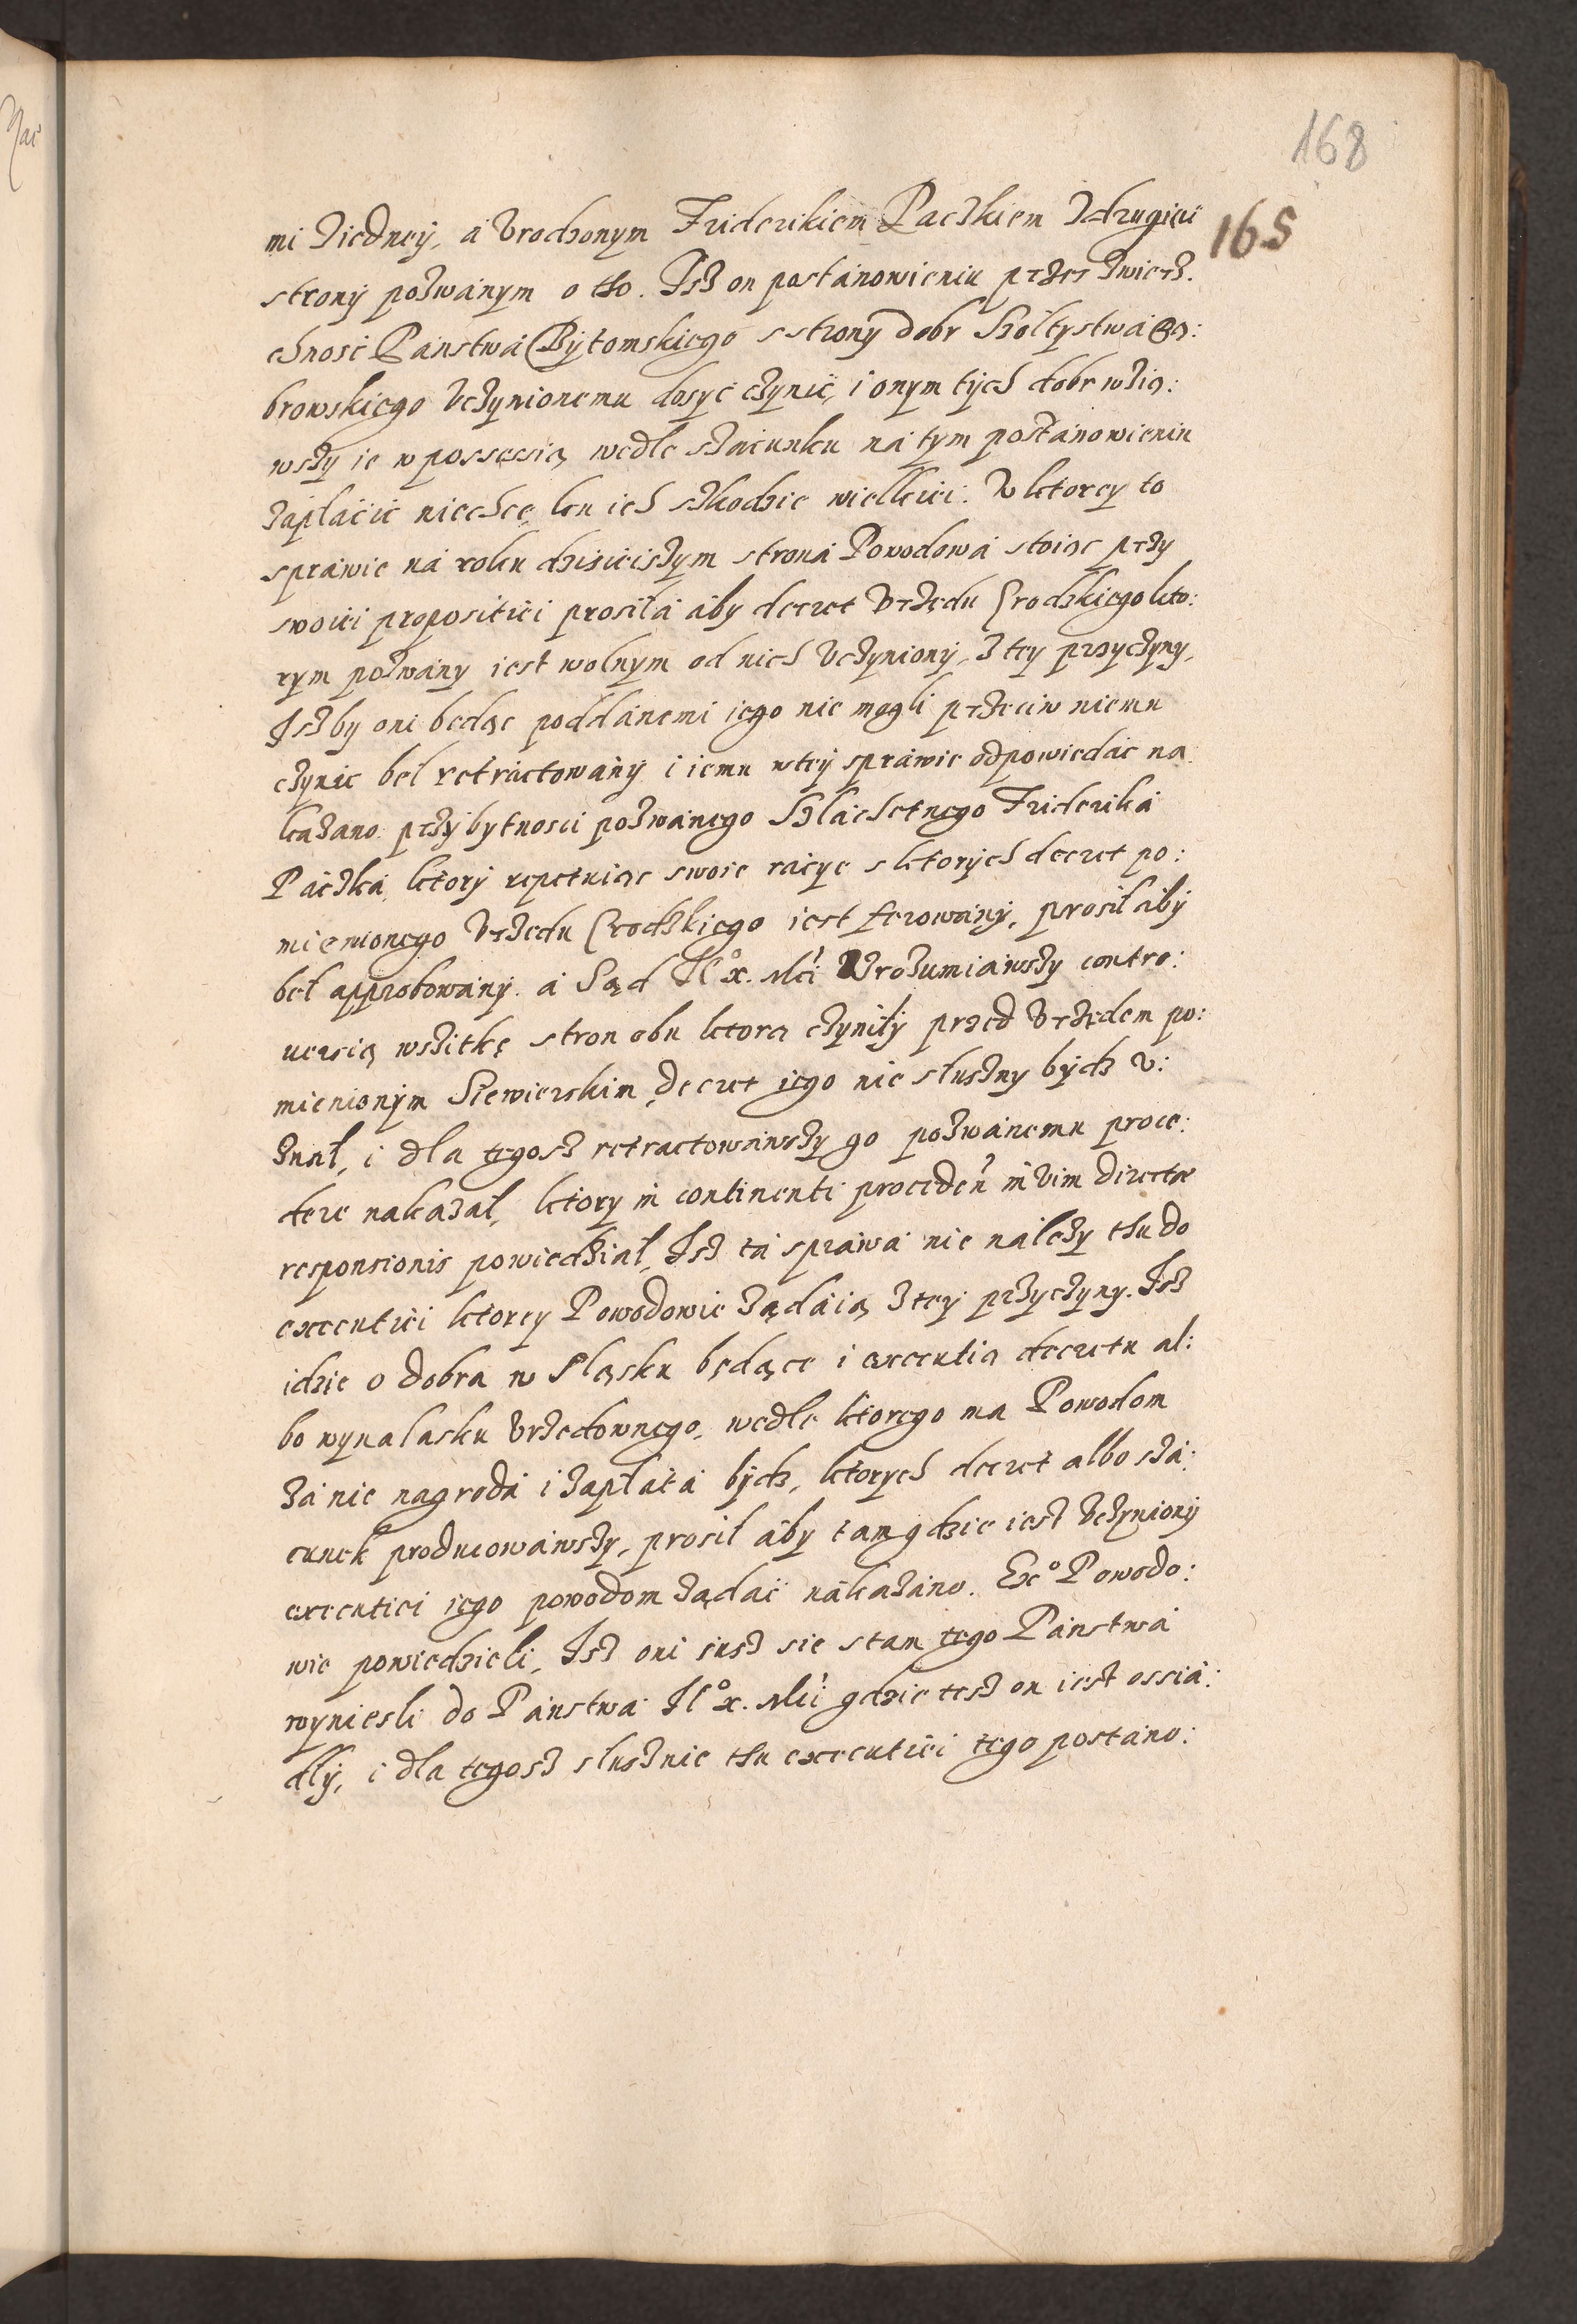 168
165
mi ziedney, a Vrodzonym Friderikiem Paczkiem zdrugiei
strony pozwanym o tho. Isz on postanowieniu przez zwierz.
chnosc Panstwa Bytomskiego sstrony dobr Szoltystwa Bą:
browskiego Vczynionemu dosyc czynic, i onym tych dobr wzią:
wszy ie w possessią wedle szacunku na tym postanowieniu
zaplacic niechce, ku ich szkodzie wielkiei. W ktorey to
sprawie na roku dzisieiszym strona Powodowa stoiąc przy
swoiei propositiei prosila aby decret Vrzędu Grodzkiego kto:
rym pozwany iest wolnym od nich Vczyniony, z tey przyczyny,
Iszby oni będąc poddanemi iego nie mogli przeciw niemu
czynic bel retractowany i iemu wtey sprawie odpowiedac na
kazano. przy bytnosci pozwanego Szlachetnego Friderika
Paczka, ktory repetuiąc swoie racye s ktorych decret po:
mienionego Vrzedu Grodzkiego iest ferowany, prosil aby
bel approbowany. a Sąd Ilº x. Mci Vrozumiawszy contro:
uersią wszitkę stron obu ktorą czynily przed Vrzędem po:
mienionym Siewierskim, decret iego nie sluszny bydz v:
znal, i dla tegosz retractowawszy go pozwanemu proce:
dere nakazal, ktory in continenti proceden in vim directæ
responsionis powiedzial, Isz ta sprawa nie nalezy thu do
executiei ktorey Powodowie ządaią z tey przyczyny. Isz
idzie o dobra w Sląsku będące i executią decretu al:
bo wynalasku Vrzedownego, wedle ktorego ma Powodom
za nie nagroda i zaplata bydz, ktorych decret albo sza:
cunek producowawszy, prosil aby tam gdzie iest Vczyniony
executiei iego powodom ządac nakazano. Exº Powodo:
wie powiedzieli, Isz oni iusz sie stam tego Panstwa
wyniesli do Panstwa Ilº x. Mci gdzie tesz on iest ossia:
dly, i dla tegosz slusznie thu executiei tego postano: